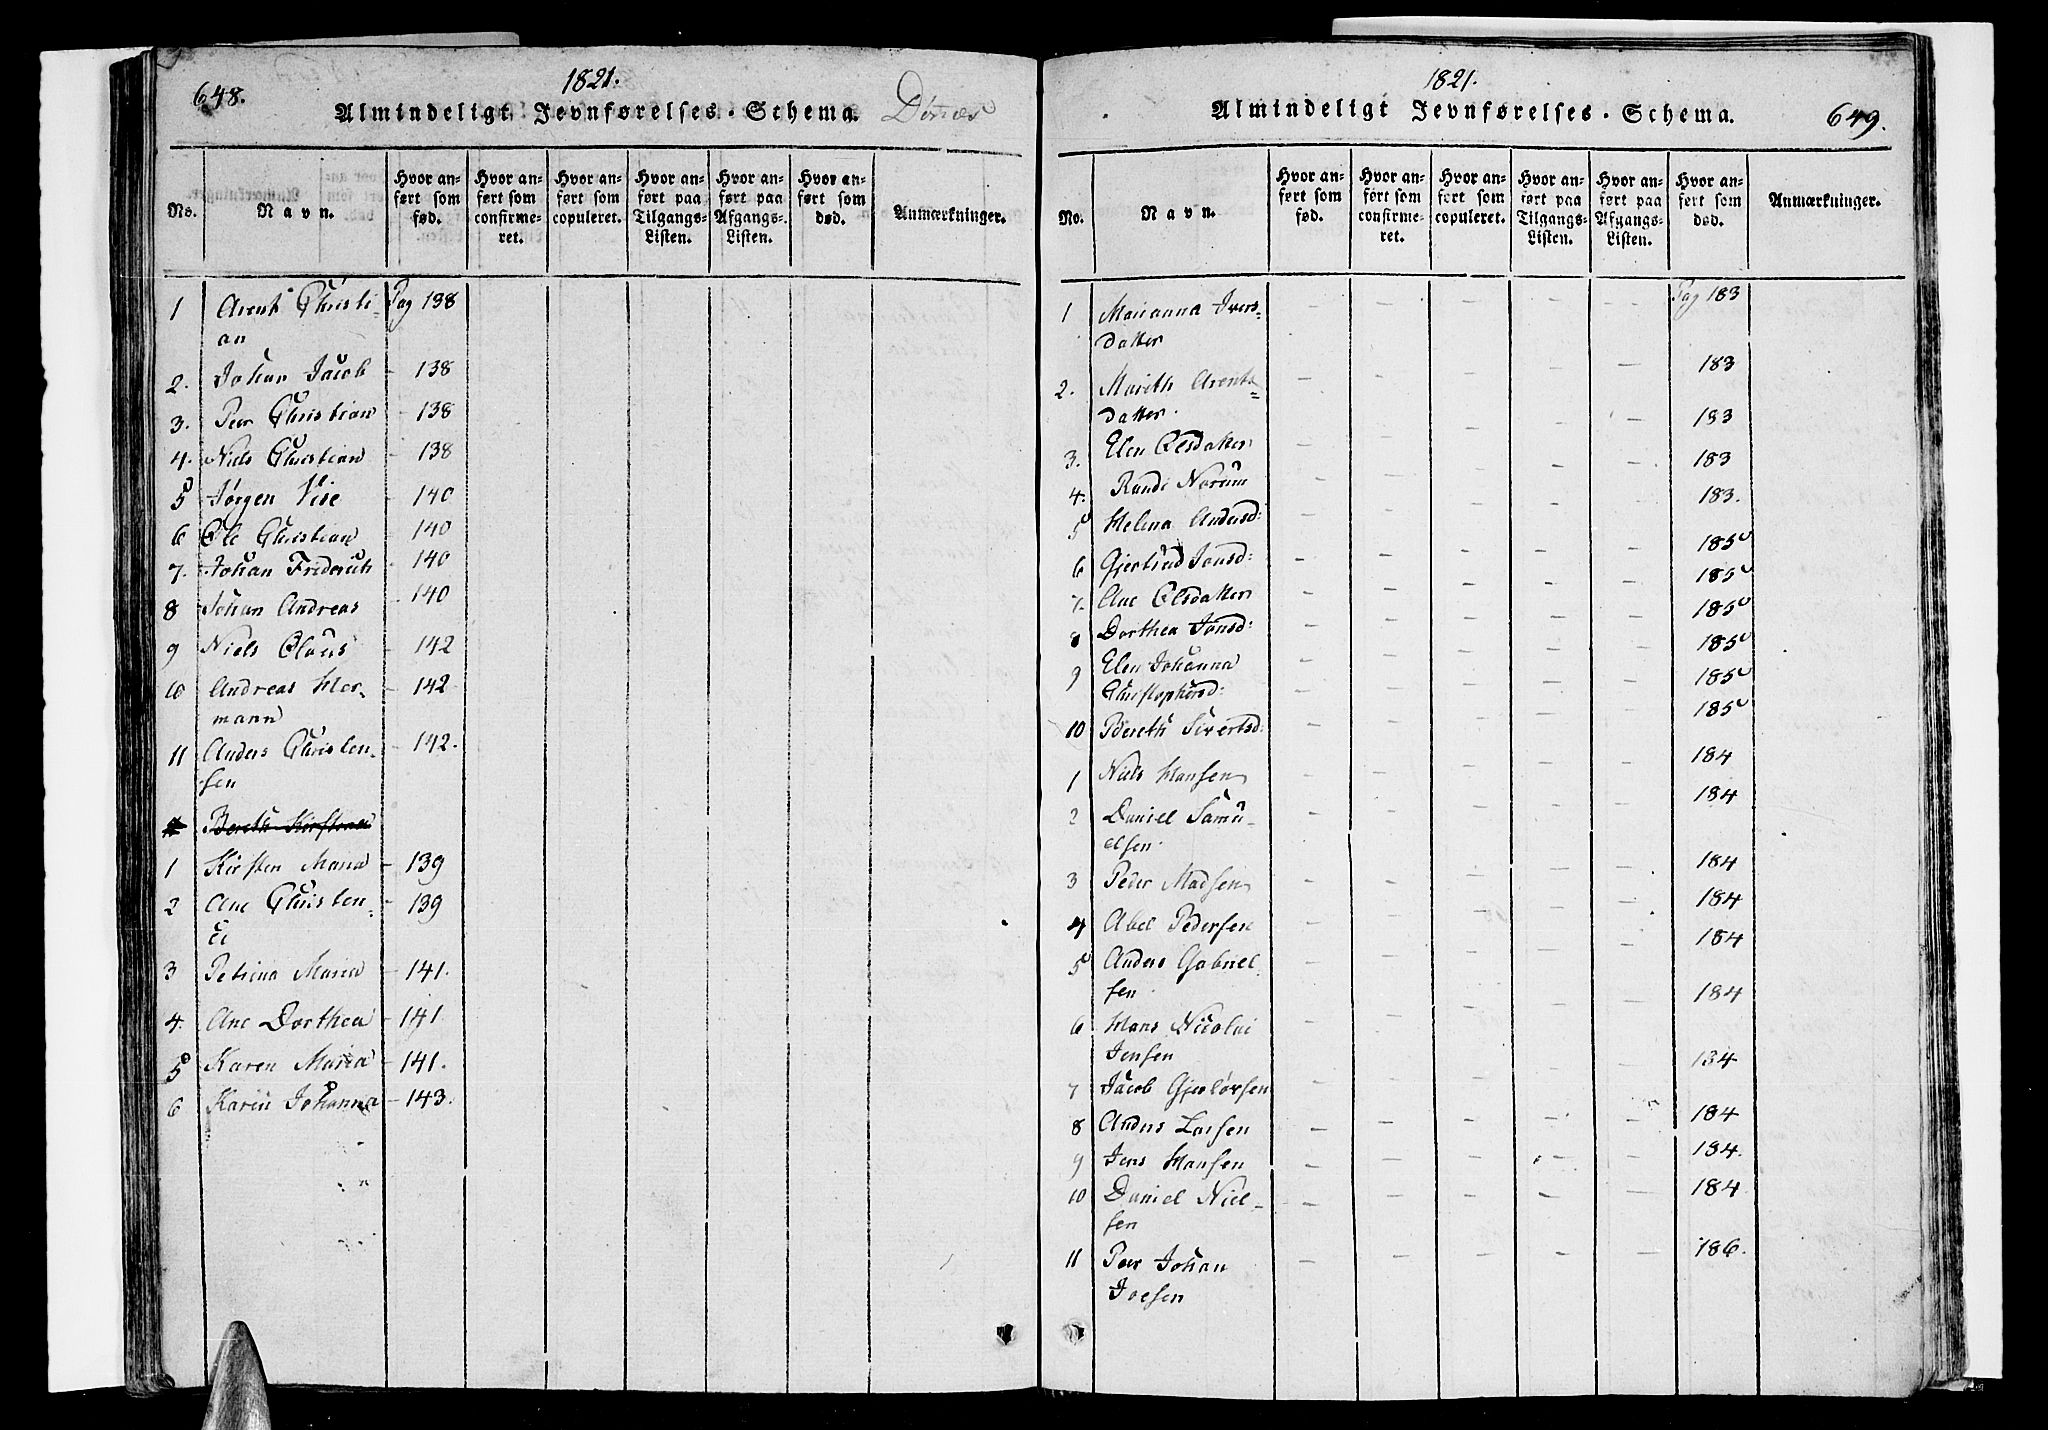 648.
1821.
Almindeligt Jevnførelses-Schema.
No.
Navn.
Hvor an-
ført som
fød.
Hvor an-
ført som
confirme-
ret.
Hvor an-
ført som
copuleret.
Hvor an-
ført paa
Tilgangs-
Listen.
Hvor an-
ført paa
Afgangs-
Listen.
Hvor an-
ført som
død.
Anmærkninger.
1 Arent Christi- Pag 138
an
2. Johan Jacob - 138
3. Peer Christian - 138
4. Niels Christian - 138
5 Jørgen Vise - 140
6 Ole Christian - 140
7. Johan Friderich - 140
8 Johan Andreas - 140
9 Niels Claus - 142
10 Andreas Her- - 142
mann
11 Anders Christen- - 142.
sen
Bereth Kirstina
1 Kirsten Maria - 139
2 Ane Christen- - 139
3 Petrina Maria - 141.
4. Ane Dorthea - 141
5 Karen Maria - 141.
6 Karin Johanna - 143.
1821.
Almindeligt Jevnførelses-Schema.
649.
No.
Navn.
Hvor an-
ført som
fød.
Hvor an-
ført som
confirme-
ret.
Hvor an-
ført som
copuleret.
Hvor an-
ført paa
Tilgangs-
Listen.
Hvor an-
ført paa
Afgangs-
Listen.
Hvor an-
ført som
død.
Anmærkninger.
1 Marianna Ivers- - - - - - Pag 183
datter
2. Mareth Arents= - - - - - 183
datter.
3. Elen Olsdatter - - - - - 183
4. Randi Norum - - - - - 183
5 Helena Andersd: - - - - - 183.
6 Gjertrud Jonsd: - - - - - 185
7. Ane Olsdatter - - - - - 185
8 Dorthea Jonsd: - - - - - 185
9 Elen Johanna - - - - - 185
Christophersd:
10 Bereth Sivertsd: - - - - - 185
185
1 Niels Hansen - - - - - 184
2 Daniel Samu- - - - - - 184
elsen.
3 Peder Madsen - - - - - 184
4 Abel Pedersen - - - - - 184
5 Anders Gabriel- - - - - - 184
sen.
6 Hans Nicolai - - - - - 184
Jensen
7 Jacob - - - - - 184
8 Anders Larsen - - - - - 184
9 Jens Hansen - - - - - 184.
10 Daniel Niel- - - - - - 184
sen
11 Peer Johan - - - - - 186.
Joesen